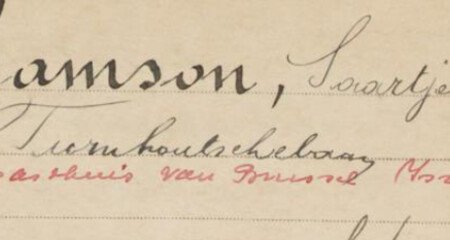 amson, Saartje
Turnhoutschebaan
asthuis van Brussel